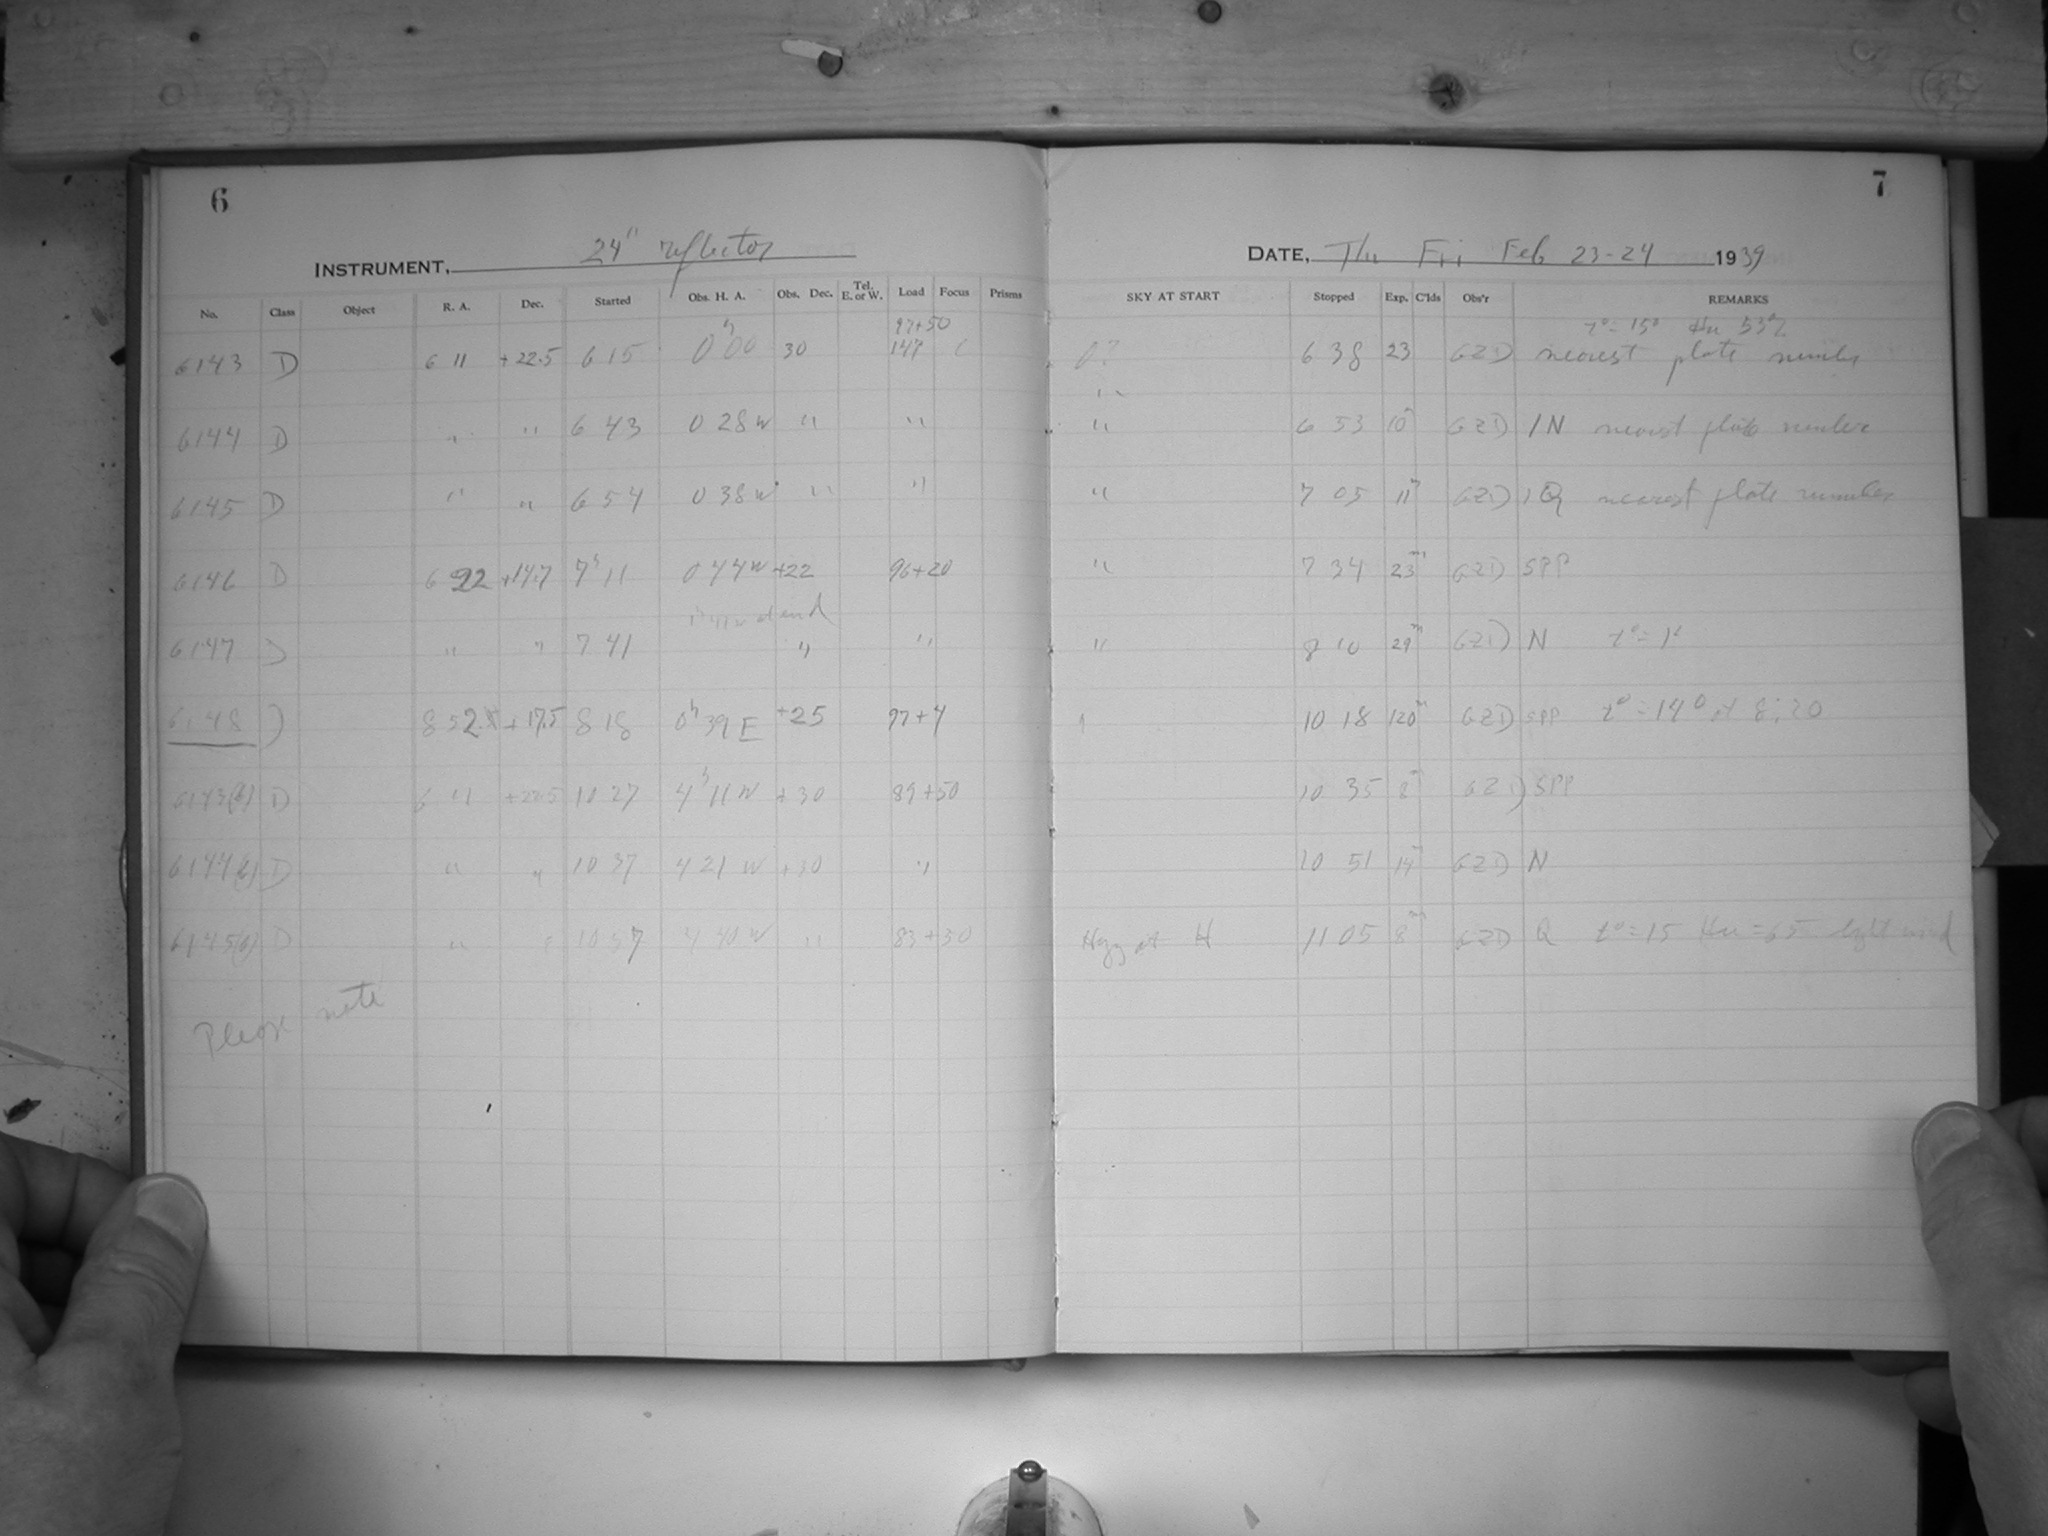 6
INSTRUMENT, 24" reflector
No. Class Object R. A. Dec. Started Obs. H. A. Obs. Dec. Tel. E. or W. Load Focus Prisms
97+50
6143 D 6 11 +22.5 6 15 0h 00 30 147
6144 D " " 6 43 0 28 W " "
6145 D " " 6 54 0 38 W " "
6146 D 6 22 +14.7 7h 11 0 44 W +22 96+20
at end
6147 D " " 7 41 " "
6148 D 8 52.5 +17.5 8 18 0h 39 E +25 97+4
6143(b) D 6 11 +22.5 10 27 4h 11 W +30 89+50
6144(b) D " " 10 37 4 21 W +30 "
6145(b) D " " 10 57 4 40 W " 83+30
Please note
7
DATE, Thu Fri Feb 23-24 1939
SKY AT START Stopped Exp. C'lds Obs'r REMARKS
t°=15° Hu 53%
0? 6 38 23 GZD nearest plate number
" 6 53 10 GZD 1N nearest plate number
" 7 05 11m GZD 1Q nearest plate number
" 7 34 23m GZD SPP
" 8 10 29m GZD N
10 18 120m GZD SPP t°=14° at 8:20
10 35 8m GZD SPP
10 51 14m GZD N
Hzy at H 11 05 8m GZD Q t°=15 Hu=65 light wind